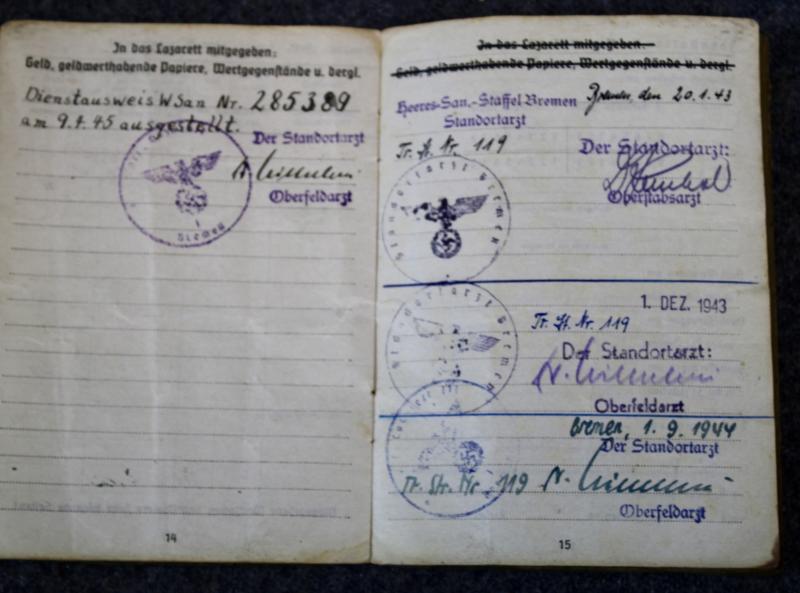 In das Lazarett mitgegeben:
Geld, geldwerthabende Papiere, Wertgegenstände u. dergl.
Dienstausweis W San Nr. 285389
am 9.4.45 ausgestellt.
Der Standortarzt
Oberfeldarzt
Bremen
14
In das Lazarett mitgegeben.
Geld, geldwerthabende Papiere, Wertgegenstände u. dergl.
Heeres-San.-Staffel Bremen
Standortarzt
Bremen, den 20.1.43
Tr. St. Nr. 119
Der Standortarzt:
Oberstabsarzt
Standortarzt Bremen
1. DEZ. 1943
Tr. St. Nr. 119
Der Standortarzt:
Oberfeldarzt
Standortarzt Bremen
Bremen, 1.9.1944
Der Standortarzt
Tr. Str. Nr. 119
Oberfeldarzt
15